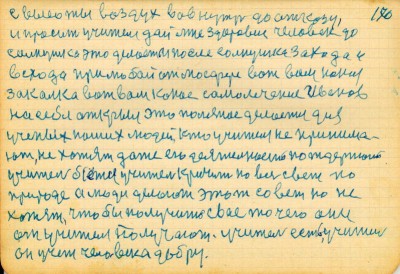 с высоты воздух во внутр до отказу, 156
и просит учител дай мне здоровия человек до
солнушка это делаеты после солнушка захода и
всхода при любой атмосфере вот вам наши
закалка вот вам какое самолечение Иванов
на себя открыл это полезное делаеты для
ученых наших людей кто учител не принима-
ют, не хотят даже его деятельности поддержат
учител б учител кричит на вся свет по
природе а люди делают этот совет но не
хотят, чтобы получить свае то чего они
от учител получают. учител есть, учител
он учет человека добру.